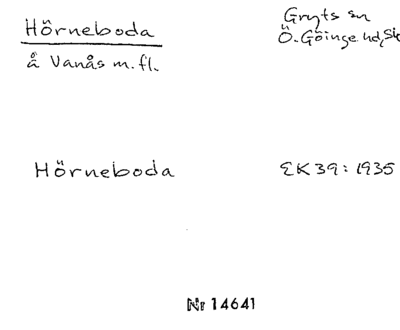 Hörneboda
Gryts sn
Ö. Göinge hd, Sk
å Vanås m.fl.
Hörneboda
EK 39: 1935
Nr 14641